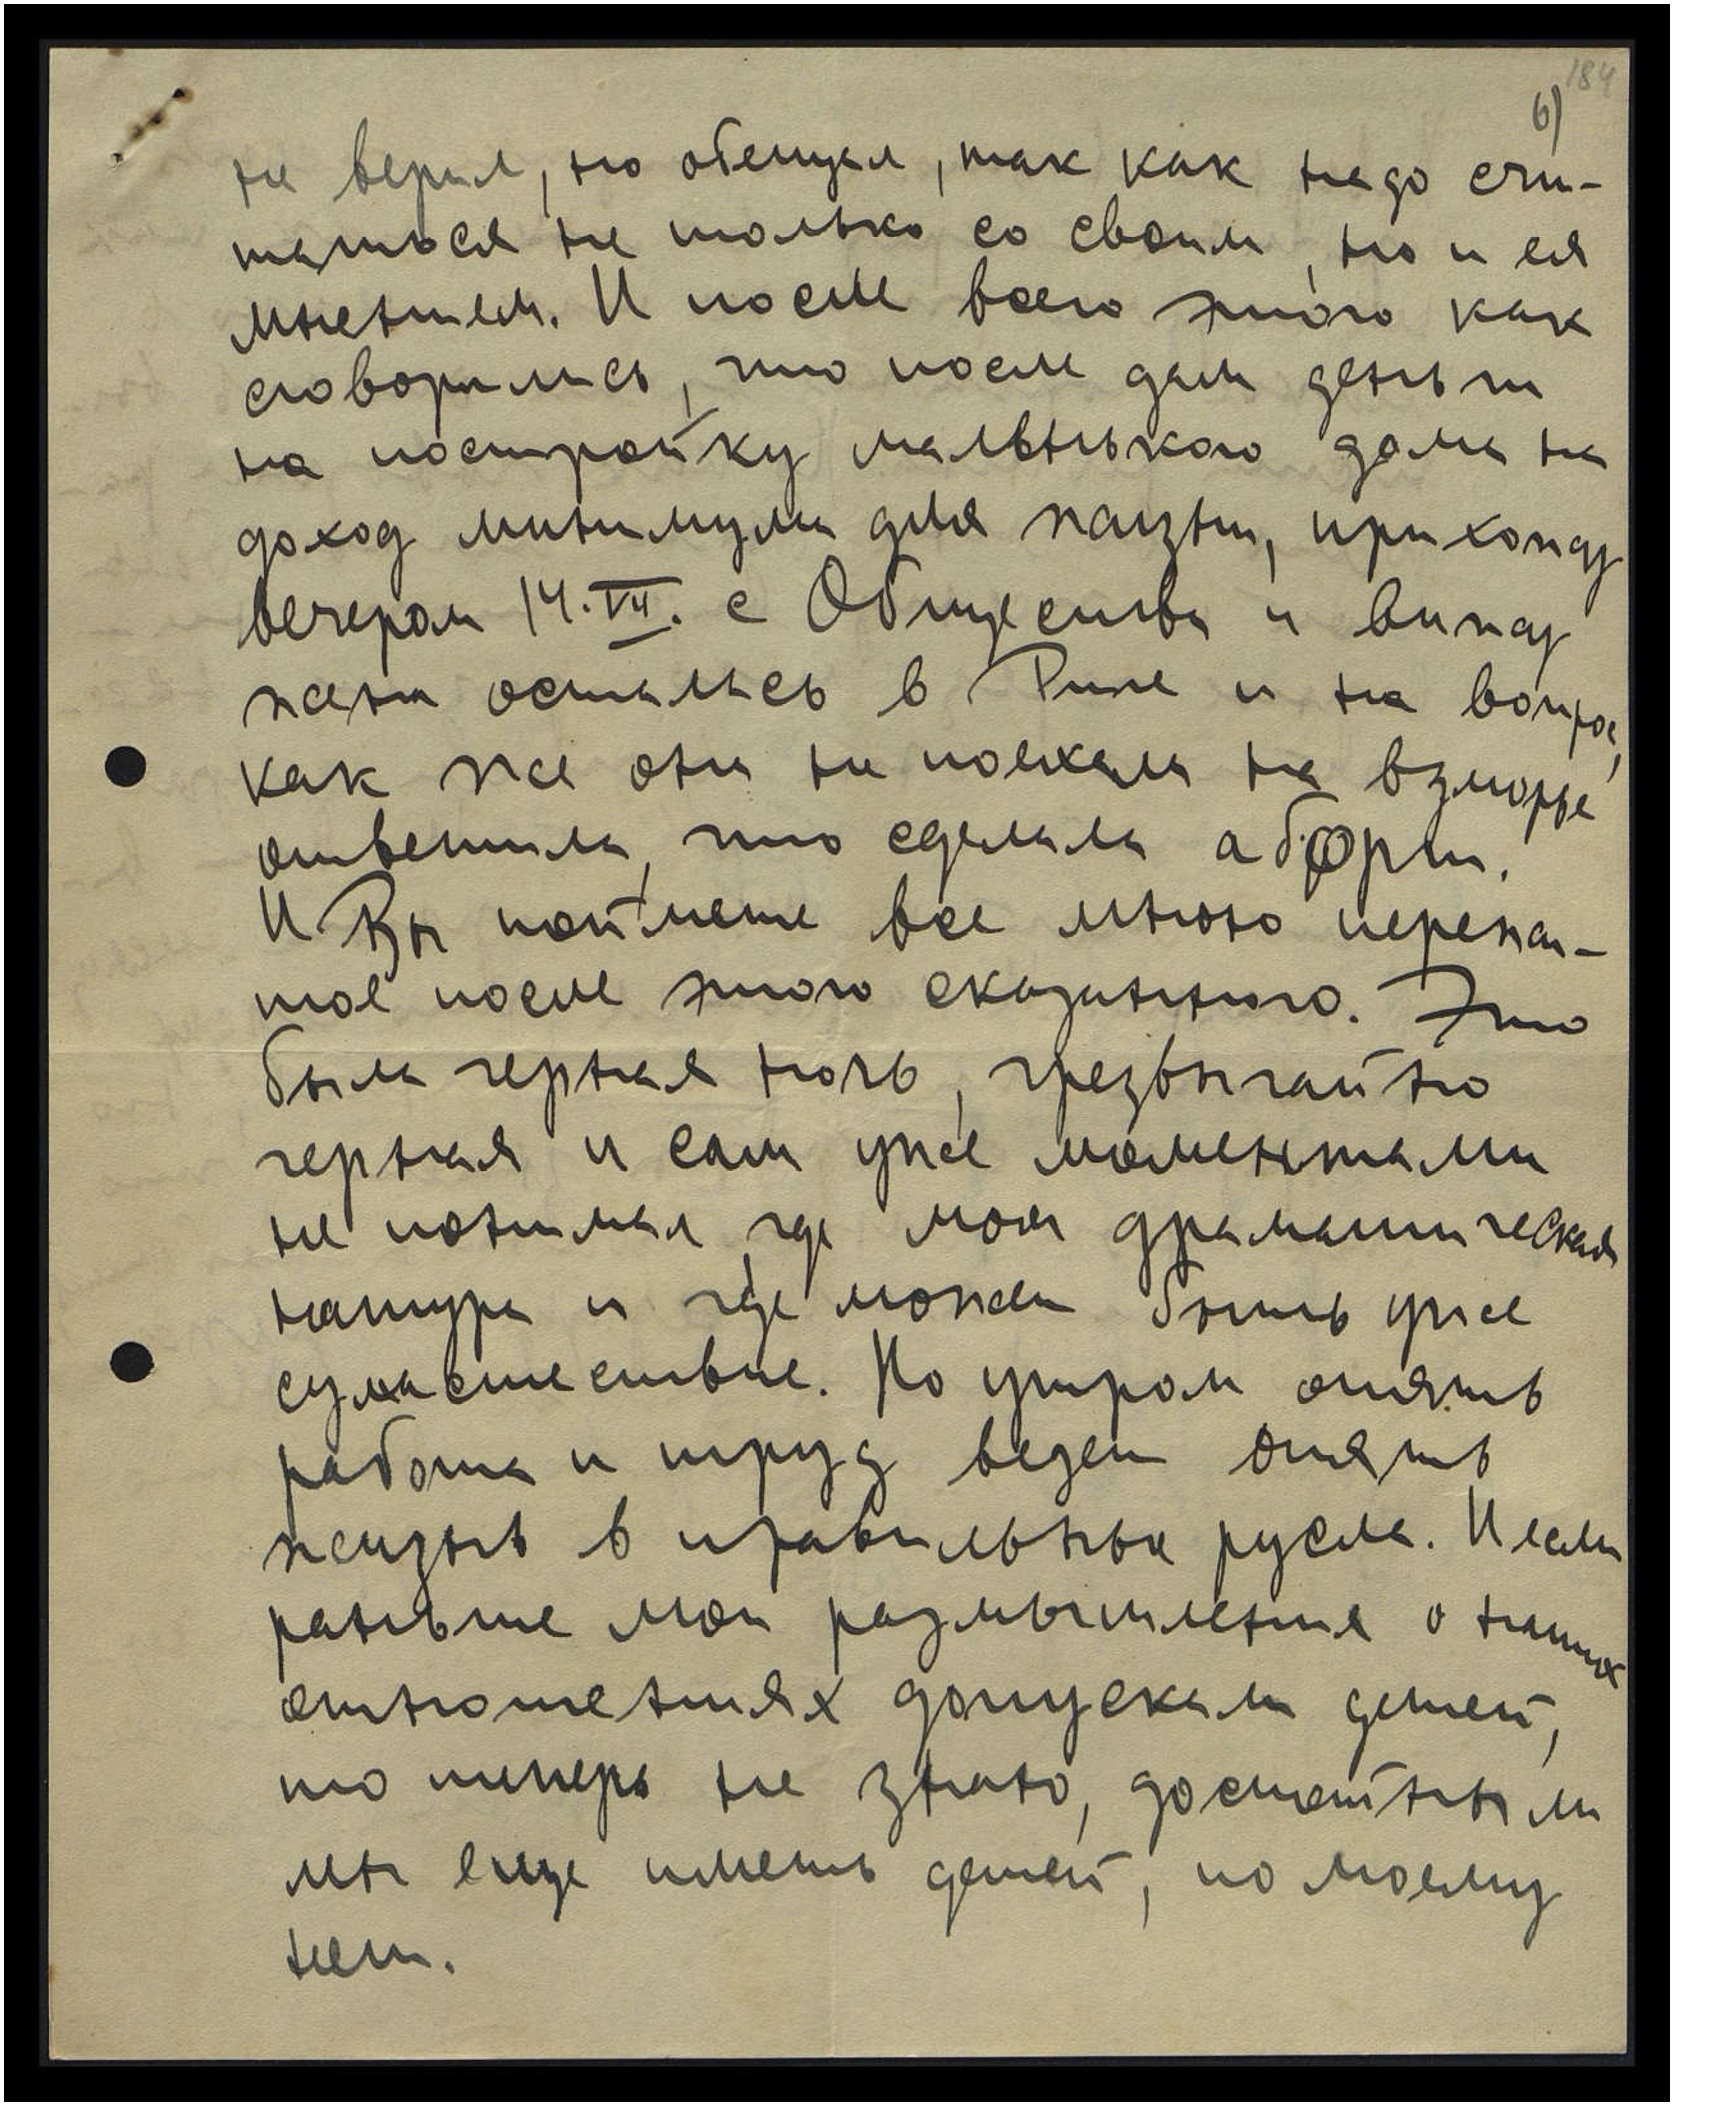 184
6)
не верил, но обещал, так как надо счи-
таться не только со своим, но и ея
мнением. И после всего этого как
сговорились, что после дам деньги
на постройку маленького дома на
доход минимум для жизни, прихожу
вечером 14.VII. с Общества и вижу
жена осталась в Риге и на вопрос,
как же она не поехала на взморье
ответила, что сделала аборт.
И Вы поймете все мною пережи-
тое после этого сказанного. Это
была черная ночь, чрезвычайно
черная и сам уже моментами
не понимал где моя драматическая
натура и где может быть уже
сумасшествие. Но утром опять
работа и труд ведет опять
жизнь в правильные русла. И если
раньше мои размышления о наших
отношениях допускали детей,
то теперь не знаю, достойны ли
мы еще иметь детей, по моему
нет.